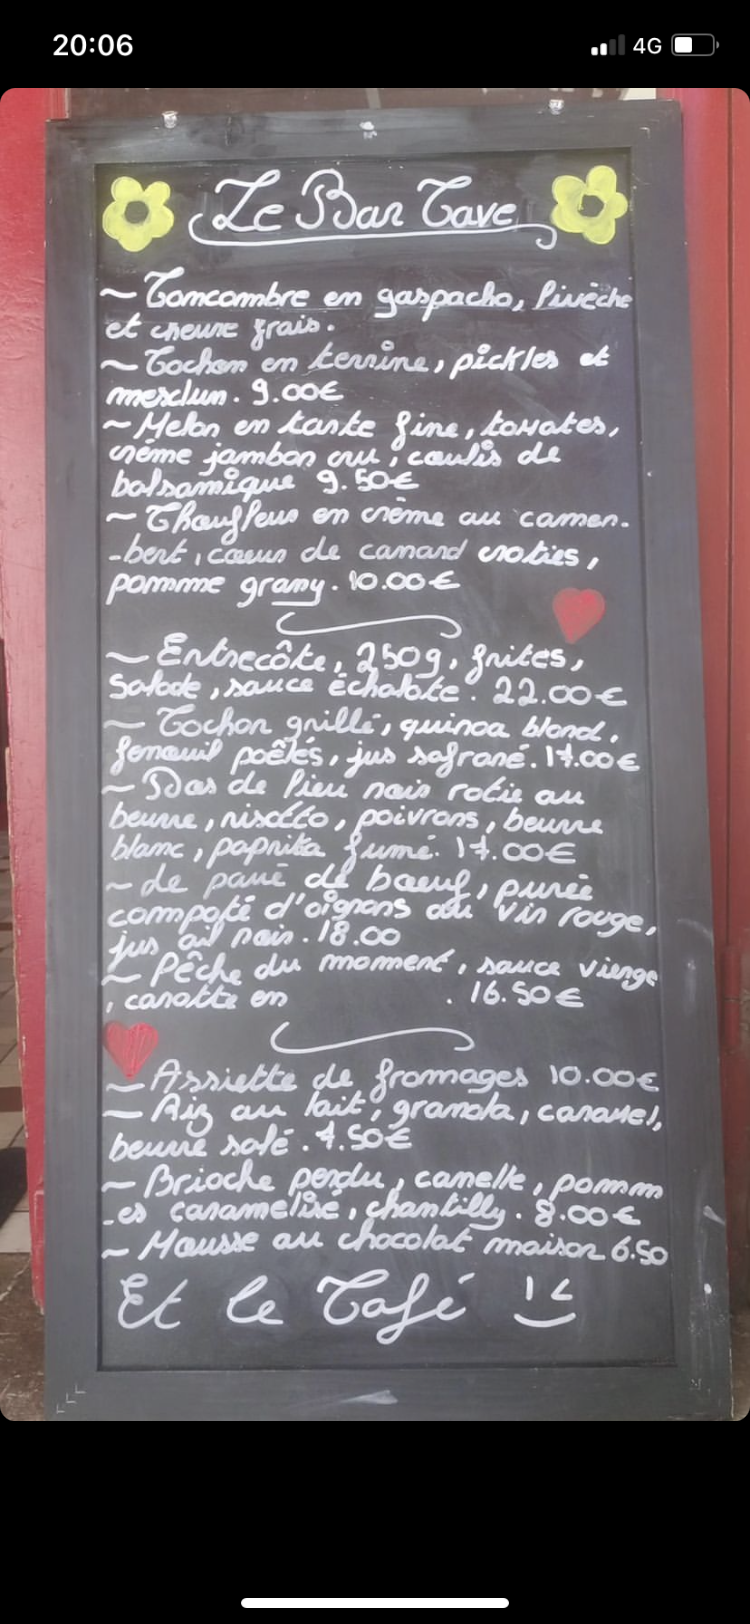 20:06
4G
Le Bar Cave
~ Concombre en gaspacho, livèche
et chèvre frais.
~ Cochon en terrine, pickles et
mesclun. 9.00€
~ Melon en tarte fine, tomates,
crème jambon cru, coulis de
balsamique 9.50€
~ Choufleur en crème au camem-
-bert, cœur de canard croties,
pommme grany. 10.00€
~ Entrecôte, 250g, frites,
Salade, sauce échalote. 22.00€
~ Cochon grillé, quinoa blond,
fenouil poêlés, jus safrané. 17.00€
~ Dos de lieu noir rotie au
beurre, risotto, poivrons, beurre
blanc, paprika fumé. 17.00€
~ de pavé de bœuf, purée
compoté d'oignons au vin rouge,
jus ail noir. 18.00
~ Pêche du moment, sauce vierge
, carotte en . 16.50€
~ Assiette de fromages 10.00€
~ Riz au lait, granola, caramel,
beurre salé. 7.50€
~ Brioche perdu, canelle, pomm
-es caramelisé, chantilly. 8.00€
~ Mousse au chocolat maison 6.50
Et le Café